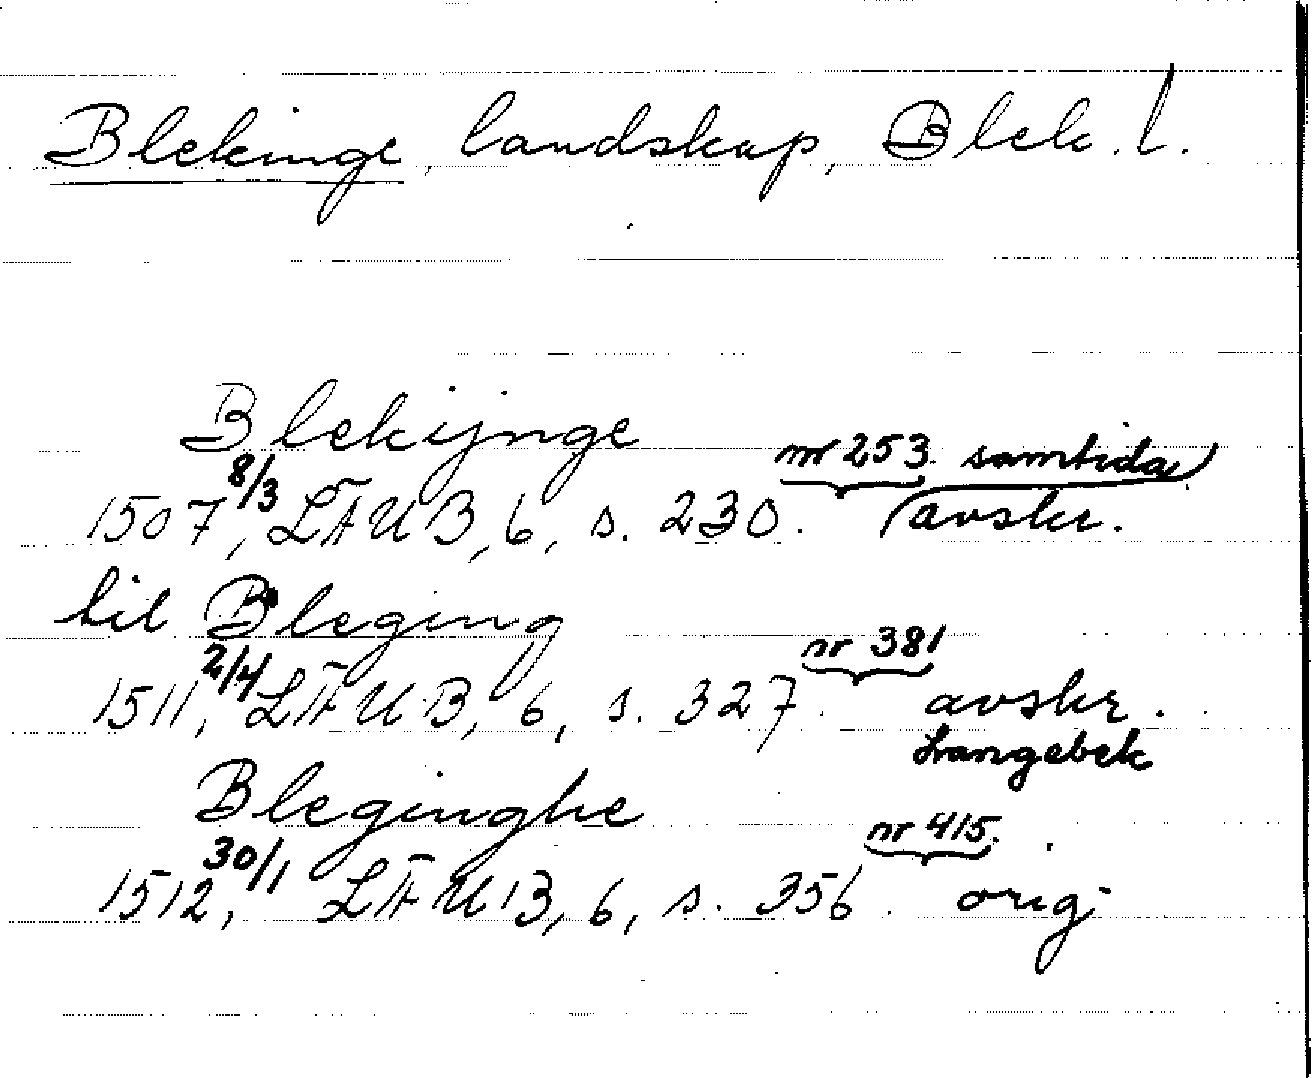 Blekinge, landskap, Blek. l.
Blekijnge
1507 8/3, LÄUB, 6, s. 230. nr 253 samtida avskr.
til Bleging
1511, 2/4 LÄUB, 6, s. 327. nr 381 avskr.
Langebek
Bleginghe
1512, 30/1 LÄUB, 6, s. 356. nr 415. orig